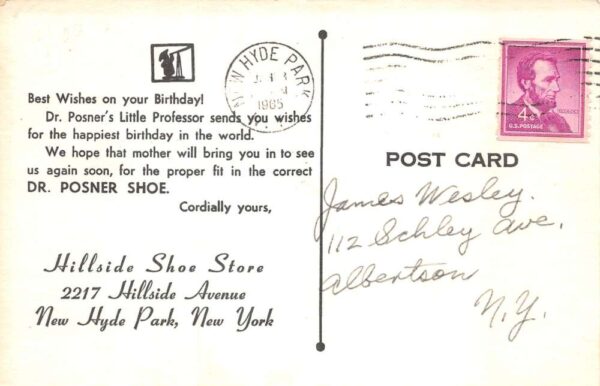 Best Wishes on your Birthday!
Dr. Posner's Little Professor sends you wishes
for the happiest birthday in the world.
We hope that mother will bring you in to see
us again soon, for the proper fit in the correct
DR. POSNER SHOE.
Cordially yours,
Hillside Shoe Store
2217 Hillside Avenue
New Hyde Park, New York
NEW HYDE PARK
1965
4¢
U.S. POSTAGE
POST CARD
James Wesley.
112 Schley Ave.
Albertson
N.Y.